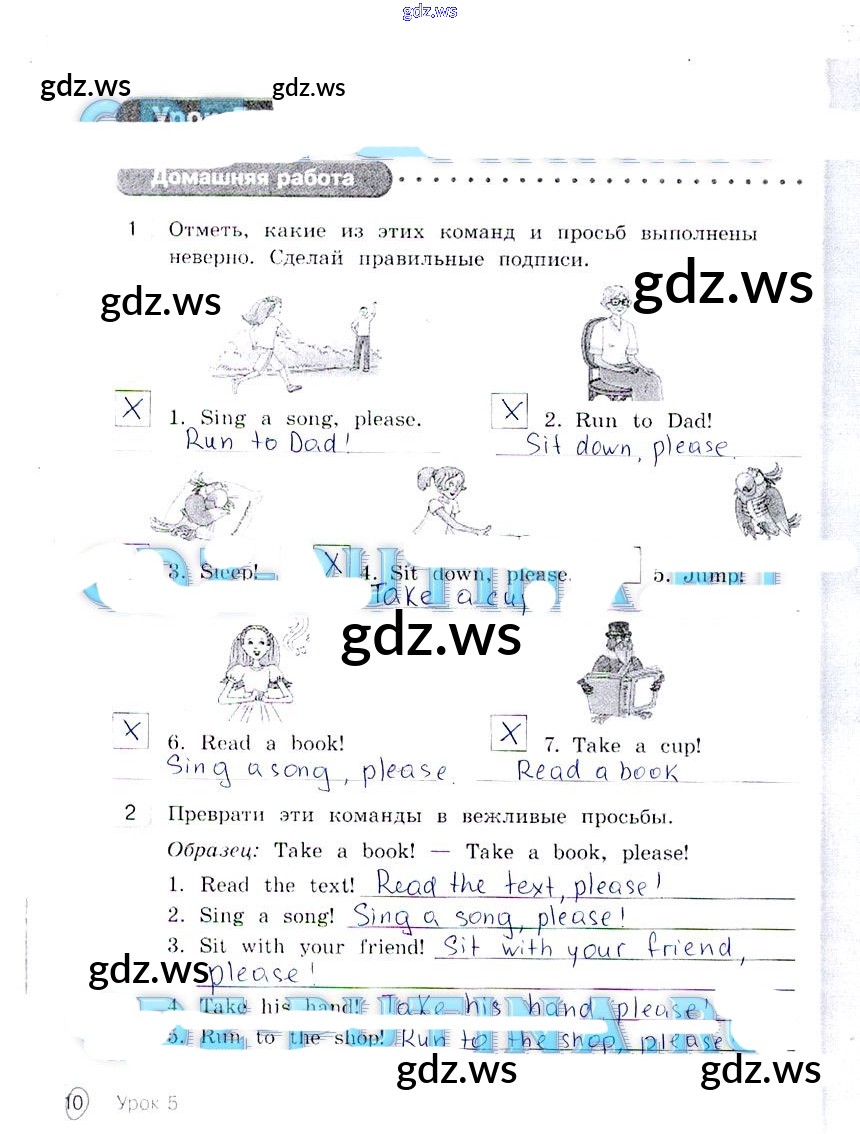 gdz.ws
gdz.ws gdz.ws
Домашняя работа
1 Отметь, какие из этих команд и просьб выполнены
неверно. Сделай правильные подписи.
gdz.ws gdz.ws
X 1. Sing a song, please. X 2. Run to Dad!
Run to Dad! Sit down, please.
3. Sleep! X 4. Sit down, please. 5. Jump!
Take a cup
gdz.ws
X 6. Read a book! X 7. Take a cup!
Sing a song, please. Read a book
2 Преврати эти команды в вежливые просьбы.
Образец: Take a book! — Take a book, please!
1. Read the text! Read the text, please!
2. Sing a song! Sing a song, please!
3. Sit with your friend! Sit with your friend,
gdz.ws please!
4. Take his hand! Take his hand, please!
5. Run to the shop! Run to the shop, please
gdz.ws gdz.ws
10 Урок 5